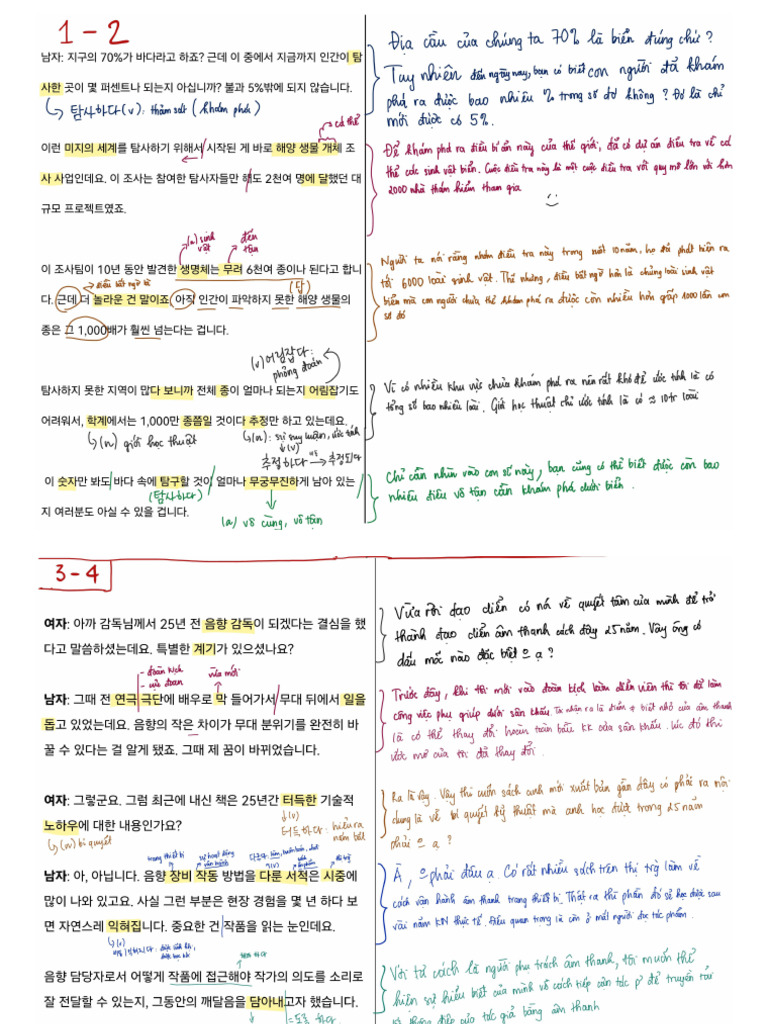 1 - 2
남자: 지구의 70%가 바다라고 하죠? 근데 이 중에서 지금까지 인간이 탐
사한 곳이 몇 퍼센트나 되는지 아십니까? 불과 5%밖에 되지 않습니다.
↳ 탐사하다 (v): thám sát (khám phá)
Địa cầu của chúng ta 70% là biển đúng chứ?
Tuy nhiên đến ngày nay, bạn có biết con người đã khám
phá ra được bao nhiêu % trong số đó không? Đó là chỉ
mới được có 5%.
cá thể
이런 미지의 세계를 탐사하기 위해서 시작된 게 바로 해양 생물 개체 조
사 사업인데요. 이 조사는 참여한 탐사자들만 해도 2천여 명에 달했던 대
규모 프로젝트였죠.
Để khám phá ra điều bí ẩn này của thế giới, đã có dự án điều tra về cá
thể các sinh vật biển. Cuộc điều tra này là một cuộc điều tra với quy mô lớn với hơn
2000 nhà thám hiểm tham gia
(n) sinh vật
đến tận
이 조사팀이 10년 동안 발견한 생명체는 무려 6천여 종이나 된다고 합니
다. 근데 더 놀라운 건 말이죠. 아직 인간이 파악하지 못한 해양 생물의
종은 그 1,000배가 훨씬 넘는다는 겁니다.
điều bất ngờ là
Người ta nói rằng nhóm điều tra này trong suốt 10 năm, họ đã phát hiện ra
tới 6000 loài sinh vật. Thế nhưng, điều bất ngờ hơn là chủng loài sinh vật
biển mà con người chưa thể khám phá ra được còn nhiều hơn gấp 1000 lần con
số đó
(v) 어림잡다:
phỏng đoán
탐사하지 못한 지역이 많다 보니까 전체 종이 얼마나 되는지 어림잡기도
어려워서, 학계에서는 1,000만 종쯤일 것이다 추정만 하고 있는데요.
↳ (n) giới học thuật
↳ (n): sự suy luận, ước tính
(v)
추정하다 → 추정되다
Vì có nhiều khu vực chưa khám phá ra nên rất khó để ước tính là có
tổng số bao nhiêu loài. Giới học thuật chỉ ước tính là có ≈ 10tr loài
이 숫자만 봐도 바다 속에 탐구할 것이 얼마나 무궁무진하게 남아 있는
(탐사하다)
지 여러분도 아실 수 있을 겁니다.
(a) vô cùng, vô tận
Chỉ cần nhìn vào con số này, bạn cũng có thể biết được còn bao
nhiêu điều vô tận cần khám phá dưới biển.
3 - 4
여자: 아까 감독님께서 25년 전 음향 감독이 되겠다는 결심을 했
다고 말씀하셨는데요. 특별한 계기가 있으셨나요?
Vừa rồi đạo diễn có nói về quyết tâm của mình để trở
thành đạo diễn âm thanh cách đây 25 năm. Vậy ông có
dấu mốc nào đặc biệt ko ạ?
- đoàn kịch
vừa mới
남자: 그때 전 연극 극단에 배우로 막 들어가서 무대 뒤에서 일을
돕고 있었는데요. 음향의 작은 차이가 무대 분위기를 완전히 바
꿀 수 있다는 걸 알게 됐죠. 그때 제 꿈이 바뀌었습니다.
Trước đây, khi tôi mới vào đoàn kịch làm diễn viên thì tôi đã làm
công việc phụ giúp dưới sân khấu. Tôi nhận ra là điểm ≠ biệt nhỏ của âm thanh
là có thể thay đổi hoàn toàn bầu KK của sân khấu. Lúc đó thì
ước mơ của tôi đã thay đổi.
여자: 그렇군요. 그럼 최근에 내신 책은 25년간 터득한 기술적
노하우에 대한 내용인가요?
↳ (n) bí quyết
(v)
터득하다: hiểu ra
nắm bắt
Ra là vậy. Vậy thì cuốn sách anh mới xuất bản gần đây có phải ra nội
dung là về bí quyết kỹ thuật mà anh học được trong 25 năm
phải ko ạ?
trang thiết bị
남자: 아, 아닙니다. 음향 장비 작동 방법을 다룬 서적은 시중에
많이 나와 있고요. 사실 그런 부분은 현장 경험을 몇 년 하다 보
면 자연스레 익혀집니다. 중요한 건 작품을 읽는 눈인데요.
À, ko phải đâu ạ. Có rất nhiều sách trên thị trg làm về
cách vận hành âm thanh trang thiết bị. Thật ra thì phần đó sẽ học được sau
vài năm KN thực tế. Điều quan trọng là còn ở mắt người đọc tác phẩm.
음향 담당자로서 어떻게 작품에 접근해야 작가의 의도를 소리로
잘 전달할 수 있는지, 그동안의 깨달음을 담아내고자 했습니다.
Với tư cách là người phụ trách âm thanh, tôi muốn thể
hiện sự hiểu biết của mình về cách tiếp cận tác p' để truyền tải
của tác giả bằng âm thanh